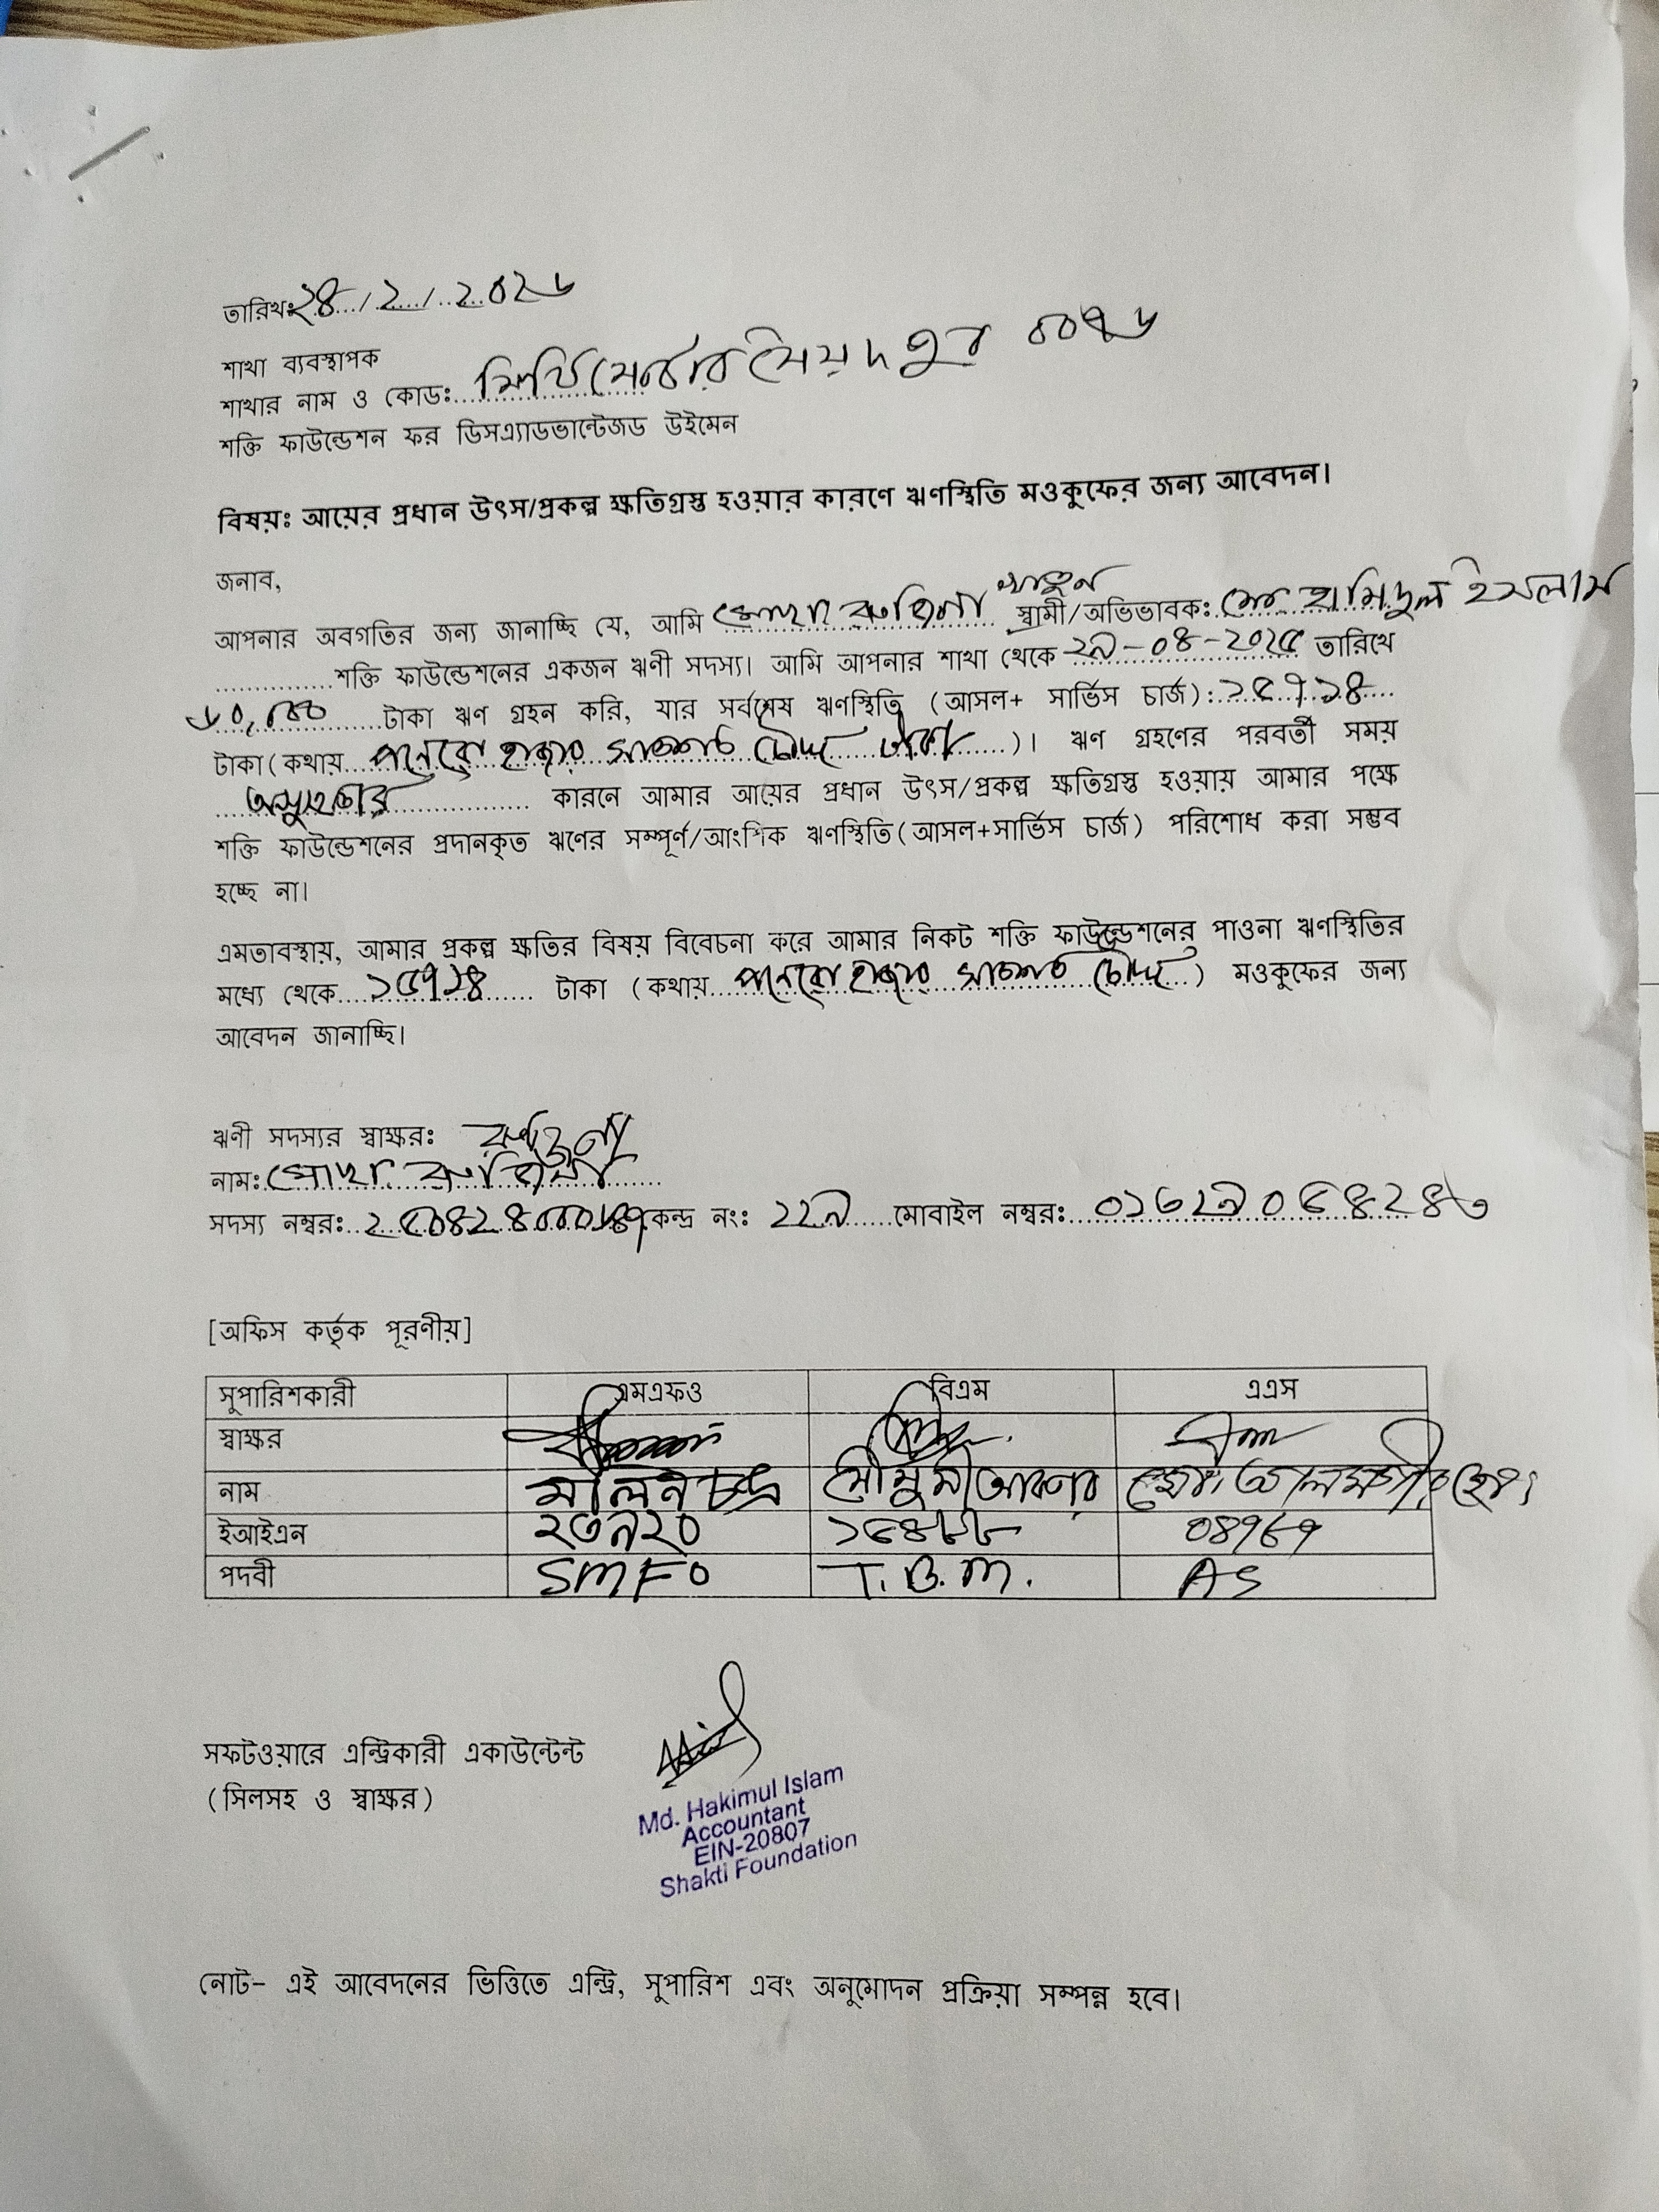 তারিখঃ২৪/২/২০২৬
শাখা ব্যবস্থাপক
শাখার নাম ও কোডঃ সৈয়দপুর ০০৭৬
শক্তি ফাউন্ডেশন ফর ডিসএ্যাডভান্টেজড উইমেন
বিষয়ঃ আয়ের প্রধান উৎস/প্রকল্প ক্ষতিগ্রস্ত হওয়ার কারণে ঋণস্থিতি মওকুফের জন্য আবেদন।
জনাব,
আপনার অবগতির জন্য জানাচ্ছি যে, আমি মোছাঃ রুহিনা খাতুন স্বামী/অভিভাবকঃ মোঃ হামিদুল ইসলাম
শক্তি ফাউন্ডেশনের একজন ঋণী সদস্য। আমি আপনার শাখা থেকে ২৯-০৪-২০২৫ তারিখে
৬০,০০০ টাকা ঋণ গ্রহন করি, যার সর্বশেষ ঋণস্থিতি (আসল+ সার্ভিস চার্জ):১৫৭১৪
টাকা(কথায় পনেরো হাজার সাতশত চৌদ্দ টাকা)। ঋণ গ্রহণের পরবর্তী সময়
অসুস্থতার কারনে আমার আয়ের প্রধান উৎস/প্রকল্প ক্ষতিগ্রস্ত হওয়ায় আমার পক্ষে
শক্তি ফাউন্ডেশনের প্রদানকৃত ঋণের সম্পূর্ণ/আংশিক ঋণস্থিতি(আসল+সার্ভিস চার্জ) পরিশোধ করা সম্ভব
হচ্ছে না।
এমতাবস্থায়, আমার প্রকল্প ক্ষতির বিষয় বিবেচনা করে আমার নিকট শক্তি ফাউন্ডেশনের পাওনা ঋণস্থিতির
মধ্যে থেকে ১৫৭১৪ টাকা (কথায় পনেরো হাজার সাতশত চৌদ্দ) মওকুফের জন্য
আবেদন জানাচ্ছি।
ঋণী সদস্যর স্বাক্ষরঃ
নামঃ মোছাঃ রুহিনা
সদস্য নম্বরঃ কেন্দ্র নংঃ ২২৯ মোবাইল নম্বরঃ
[অফিস কর্তৃক পূরণীয়]
সুপারিশকারী এমএফও বিএম এএস
স্বাক্ষর
নাম মলিন চন্দ্র মৌসুমী আক্তার
ইআইএন ২৩৯২০ ০৪৭৬৭
পদবী SMFO T.B.M. AS
সফটওয়ারে এন্ট্রিকারী একাউন্টেন্ট
(সিলসহ ও স্বাক্ষর)
Md. Hakimul Islam
Accountant
EIN-20807
Shakti Foundation
নোট- এই আবেদনের ভিত্তিতে এন্ট্রি, সুপারিশ এবং অনুমোদন প্রক্রিয়া সম্পন্ন হবে।